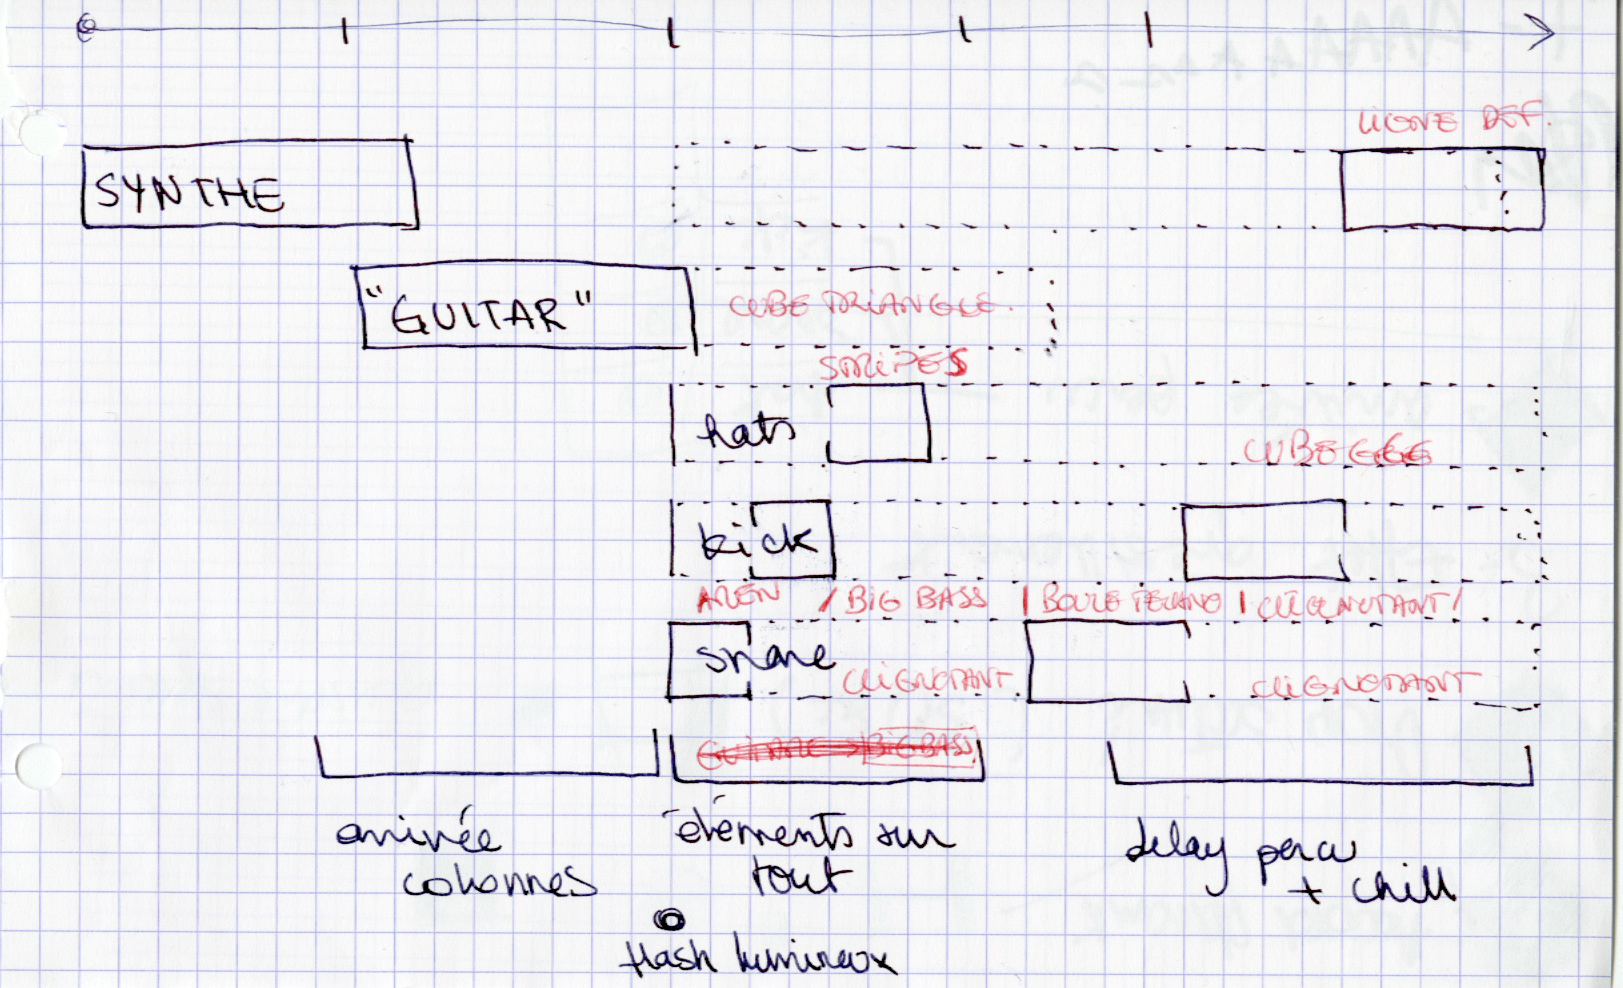 LIGNE DEF.
SYNTHE
"GUITAR"
CUBE TRIANGLE.
STRIPES
hats
CUBE
kick
/ BIG BASS | BOULE TECHNO | CLIGNOTANT /
snare
CLIGNOTANT
CLIGNOTANT
BIG BASS
arrivée
colonnes
éléments sur
tout
delay percu
+ chill
flash lumineux